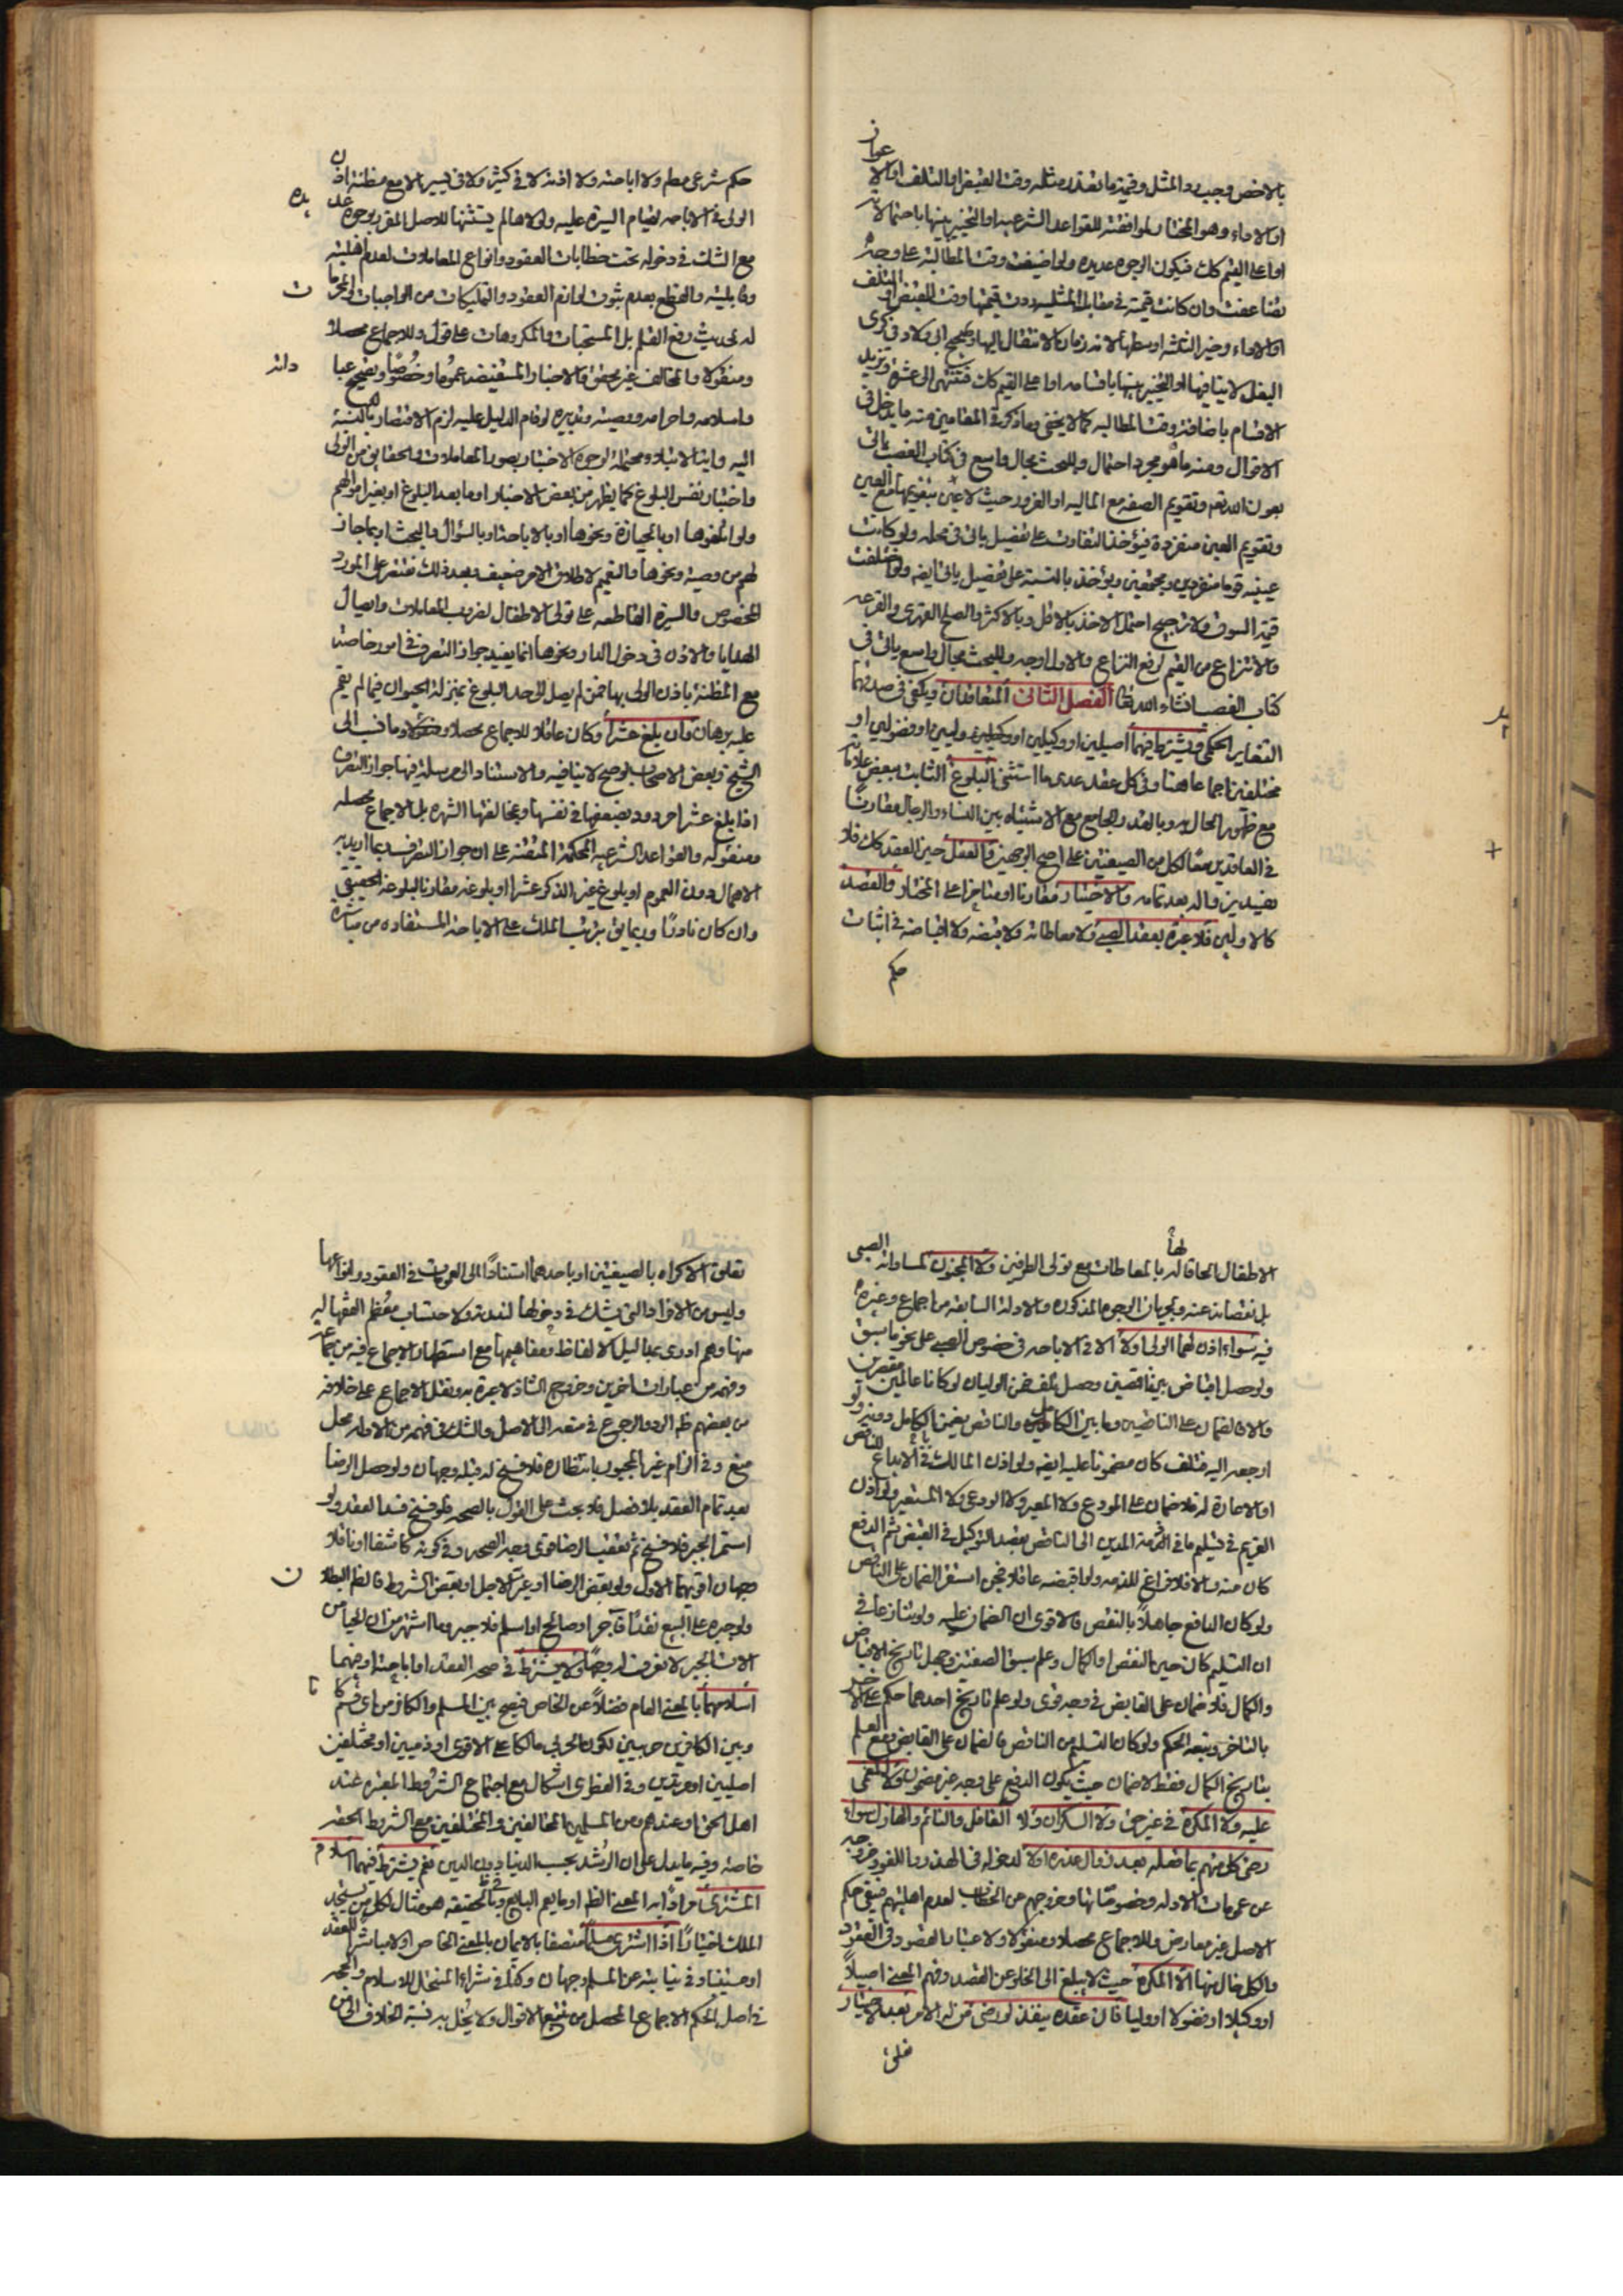 بالاخص وجب رد المثل وقيمة ما تعذر مثله وقت القبض او التلف او الاعواز
او الاداء وهو المختار لموافقته للقواعد الشرعيه او التخيير بينها باحتمالاته
او اعلى القيم كك فيكون الوجوه عديده ولو اضيفت وقت المطالبة على وجه
تضاعفت وان كانت قيمة في مقابل المثلي ردت قيمتها وقت القبض او التلف
او الاداء وخير الثلثه اوسطها لانه زمان الانتقال اليها وصحيح ابي ولاد في كرى
البغل لا ينافيها او التخيير بينها باقسامه او اعلى القيم كك فتنتهى الى عشر وتزيد
الاقسام باضافة وقت المطالبه كما لا يخفى وما ذكر في المقامين منه ما يدخل في
الاقوال ومنه ما هو مجرد احتمال وللبحث مجال واسع في كتاب الغصب ياتى
بعون الله تعم وتقويم الصفه مع الماليه او الغرور حيث لا عين بتقويمها مع العين
وتقويم العين منفردة فيؤخذ التفاوت على تفصيل ياتى في محله ولو كانت
عينيه قوما منفردين ومجتمعين ويؤخذ بالنسبة على تفصيل ياتى ايضه ولو اختلفت
قيمة السوق ولا ترجيح احتمل الاخذ بالاقل وبالاكثر والصلح القهرى والقرعه
والانتزاع من القيم لرفع النزاع والاول اوجه وللبحث مجال واسع ياتى في
كتاب الغصب انشاء الله تعالى الفصل الثانى المتعاقدان ويكفى في صدقهما
التغاير الحكمى ويشترط فيهما اصيلين او وكيلين او وليين او فضوليين او
مختلفين اجماعا هنا وفى كل عقد عدى ما استثنى البلوغ الثابت ببعض علاماته
مع ظهور الحال به وبالعدد والجامع مع الاشتباه بين النساء والرجال مقارنا
في العاقدين معا لكل من الصيغتين على اصح الوجهين والعقل حين العقد كك فلا
يفيد بزواله بعد تمامه والاختيار مقارنا او متاخرا على المختار والقصد
كالاولين فلا عبرة بعقد الصبي ولا معاطاته ولا قبضه ولا اقباضه في اثبات
حكم
حكم شرعى مطم ولا اباحته ولا اذنه لا في كثير ولا في يسير الا مع مظنة اذن
الولى في الاباحه لقيام السيرة عليه ولولاها لم يستثنها للاصل المقرر بوجوه عديده
مع الشك في دخوله تحت خطابات العقود وانواع المعاملات لعدم اهليته
وقابليته والقطع بعدم ثبوت لوازم العقود والتمليكات من الواجبات والمحرمات
له لحديث رفع القلم بل المستحبات والمكروهات على قول وللاجماع محصلا
ومنقولا والمخالف غير محقق والاخبار المستفيضه عموما وخصوصا وتصحيح عباداته
واسلامه واحرامه ووصيته وتدبيره لو قام الدليل عليه لزم الاقتصار بالنسبة
اليه وابتلا الابتلاء ومحتملة لوجوه الاختبار بصور المعاملات والحقايق من الولى
واختبار نفس البلوغ كما يظهر من بعض الاخبار او ما بعد البلوغ او بغير اموالهم
ولو اتلفوها او بالحيازة ونحوها او بالاباحة او بالسؤال والبحث او بما جاز
لهم من وصية ونحوها والتعميم لاطلاق الامر ضعيف وبعد ذلك نقتصر على المورد
المخصوص والسيرة القاطعه على تولى الاطفال لضروب المعاملات وايصال
الهدايا والاذن في دخول الدار ونحوها انما يفيد جواز التصرف في امور خاصة
مع المظنة باذن الولى بها فمن لم يصل الى حد البلوغ بمنزلة الحيوان فيما لم يقم
عليه برهان وان بلغ عشرا وكان عاقلا للاجماع محصلا ومنقولا وما نسب الى
الشيخ وبعض الاصحاب لو صح لا ينافيه والاستناد الى مرسلة فيها جواز التصرف
اذا بلغ عشرا مردود بضعفها في نفسها وبمخالفتها الشهره بل الاجماع محصله
ومنقوله والقواعد الشرعيه المحكمة المتقنة على ان جواز التصرف ربما اريد به
الاهمال دون العموم او بلوغ غير الذكر عشرا او بلوغه مقارنا لبلوغه الحقيقي
وان كان نادرا وربما يق بترتب الملك على الاباحة المستفاده من مباشرة
الاطفال الحاقا له لها بالمعاطات مع تولى الطرفين ولا المجنون لمساواته الصبى
بل نقصانه عنه ولجريان الوجوه المذكوره والادلة السابقه من اجماع وغيره
فيه سواء اذن لهما الولى او لا الا في الاباحه في خصوص الصبي على نحو ما سبق
ولو حصل اقباض بين ناقصين وحصل التلف ضمن الوليان لو كانا عالمين مقصرين
والا فالضمان على الناقصين وما بين الكامل والناقص يضمن الكامل دونه ولو
ارجعه اليه فتلف كان مضمونا عليه ايضه ولو اذن المالك في الايداع للناقص
او الاعارة له فلا ضمان على المودع ولا المعير ولا الودعى ولا المستعير ولو اذن
الغريم في تسليم ما في الذمة المدين الى الناقص بقصد التوكيل في القبض ثم الدفع
كان منه والا فلا فراغ للذمه ولو اقبضه عاقلا فجن استقر الضمان على الناقص
ولو كان الدافع جاهلا بالنقص فالاقوى ان الضمان عليه ولو تنازعا في
ان التسليم كان حين النقص او الكمال وعلم سبق الصفتين وجهل تاريخ الاقباض
والكمال فلا ضمان على القابض في وجه قوى ولو علم تاريخ احدهما حكم على الاخر
بالتاخر وتبعه الحكم ولو كان التسليم من الناقص فالضمان على القابض ومع العلم
بتاريخ الكمال فقط لا ضمان حيث يكون الدفع على وجه غير مضمون ولا المغمى
عليه ولا المكره في غير حق ولا السكران ولا الغافل والنائم والهازل سواء
رضى كل منهم بما فعله بعد زوال عذره او لا لدخوله في الهذر واللغو وخروجه
عن عمومات الادله وخصوصاتها وخروجهم عن الخطاب لعدم اهليتهم فيبقى حكم
الاصل بغير معارض وللاجماع محصلا ومنقولا ولاعتبار القصد وفى العقود
والكل خال منها الا المكره حيث لا يبلغ الى الخلو عن القصد وفهم المعنى اصيلا
او وكيلا او فضولا او وليا فان عقده ينفذ لو رضى من له الامر بعد الاختيار
فلو
تعلق الاكراه بالصيغتين او باحدهما استنادا الى العمومات في العقود وانواعها
وليس من الافراد التى يشك في دخولها لندرة ولاحتساب معظم الفقهاء له
منها وهم ادرى بمداليل الالفاظ ومفاهيمها مع استظهار الاجماع فيه من جماعة
وفهمه من عبارات اخرين وخروج الشاذ لا عبرة به ونقل الاجماع على خلافه
من بعضهم ظم الرد والرجوع في منعه الى الاصل والشك في فهمه من الادله محل
منع وفى الزام غير المجبور بانتظاره فلا فسخ له قبله وجهان ولو حصل الرضا
بعد تمام العقد بلا فصل فلا بحث على القول بالصحه فلو فسخ فسد العقد ولو
استمر الجبر فلا فسخ ثم تعقب الرضا قوى وجه الصحه وفى كونه كاشفا او ناقلا
وجهان اقويهما الاول ولو بعض الرضا او غير الاجل او بعض الشروط فالظم البطلان
ولو جبره على البيع نقدا فآجر او صالح او اسلم فلا جبر وما اشتهر من ان الحيا من
الات الجبر لا نعرف له وجها ولا يشترط في صحه العقد او اباحته او فيهما
اسلامهما بالمعنى العام فضلا عن الخاص فيصح بين المسلم والكافر من اى قسم كان
وبين الكافرين حربيين لكون الحربى مالكا على الاقوى او ذميين او مختلفين
اصليين او مرتدين وفى الفطرى اشكال مع اجتماع الشروط المعتبره عند
اهل الحق او عندهم ومن المسلمين المخالفين والمختلفين مع الشروط الحقه
خاصة وفيه ما يدل على ان الرشد بحسب الدنيا دون الدين نعم يشترط فيهما اسلام
المشترى مرادا به المعنى الظم او ما يعم البايع وفى الحقيقه هو مثال لكل من يستجد
الملك اختيارا اذا اشترى مسلما متصفا بالايمان بالمعنى الخاص او لا مباشرا للعقد
او مستنيبا وفى نيابته عن المسلم وجهان وكذا في شراء المنتحل للاسلام والحجه
في اصل الحكم الاجماع المحصل من تتبع الاقوال ولا يخل به نسبة الخلاف الى من